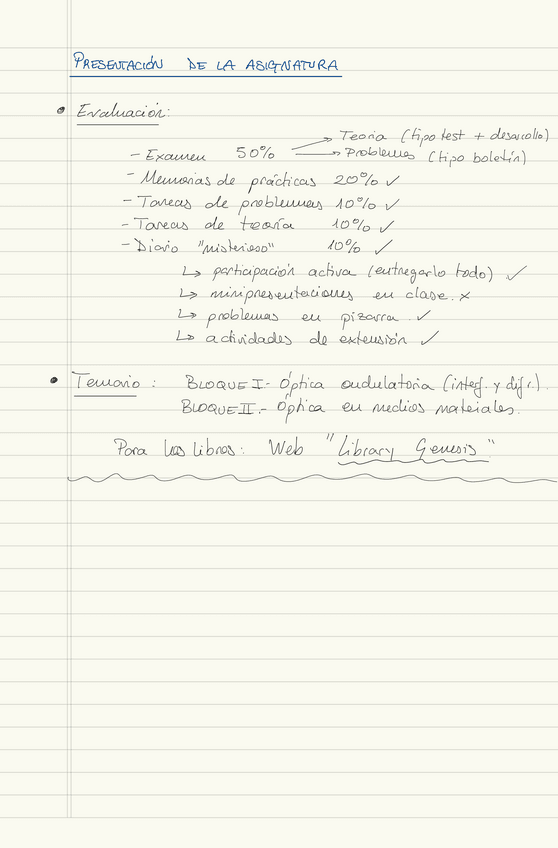 PRESENTACIÓN DE LA ASIGNATURA
• Evaluación:
→ Teoría (tipo test + desarrollo)
- Examen 50% → Problemas (tipo boletín)
- Memorias de prácticas 20% ✓
- Tareas de problemas 10% ✓
- Tareas de teoría 10% ✓
- Diario "misterioso" 10% ✓
↳ participación activa (entregarlo todo) ✓
↳ minipresentaciones en clase. x
↳ problemas en pizarra ✓
↳ actividades de extensión ✓
• Temario: BLOQUE I.- Óptica ondulatoria (interf. y difr.).
BLOQUE II.- Óptica en medios materiales.
Para los libros: Web "Library Genesis"